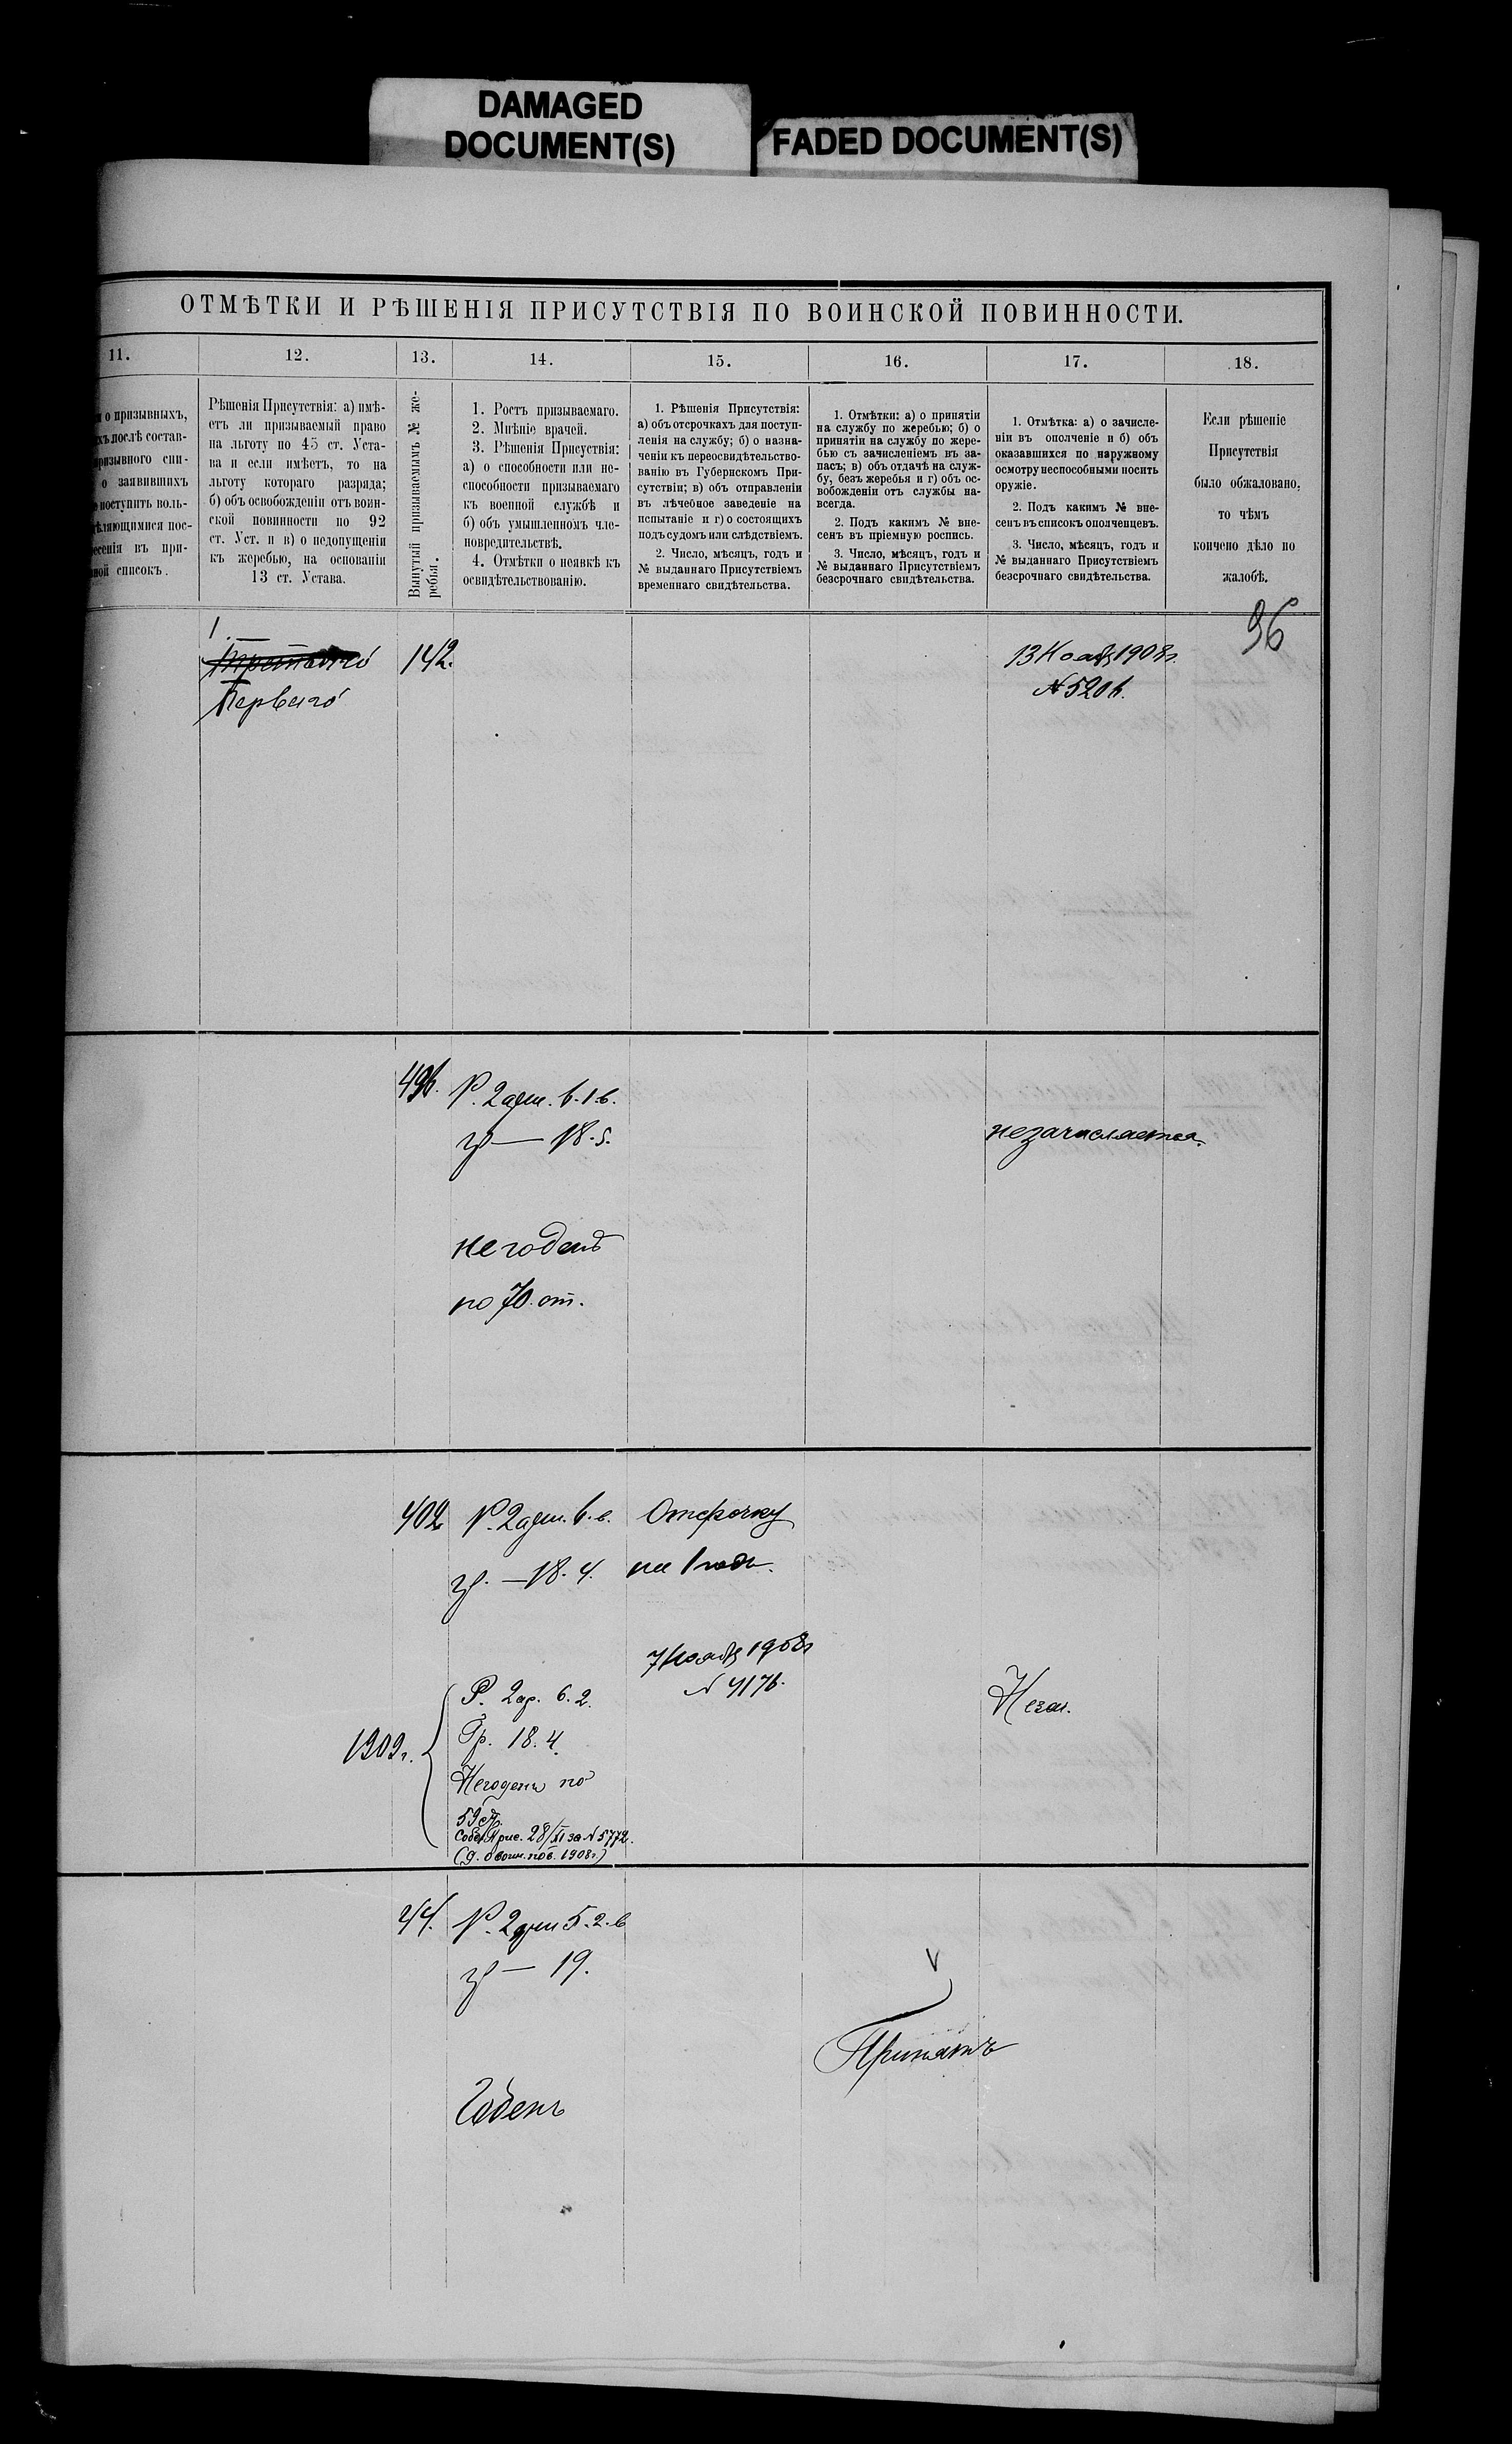 DAMAGED
DOCUMENT(S)
FADED DOCUMENT(S)
ОТМѢТКИ И РѢШЕНІЯ ПРИСУТСТВІЯ ПО ВОИНСКОЙ ПОВИННОСТИ.
11.
12.
13.
14.
15.
16.
17.
18.
о призывныхъ,
послѣ состав-
призывного спи-
о заявившихъ
поступить воль-
дѣляющимися пос-
несенія въ при-
списокъ.
Рѣшенія Присутствія: а) имѣ-
етъ ли призываемый право
на льготу по 45 ст. Уста-
ва и если имѣетъ, то на
льготу котораго разряда;
б) объ освобожденіи отъ воин-
ской повинности по 92
ст. Уст. и в) о недопущеніи
къ жеребью, на основаніи
13 ст. Устава.
Вынутый призываемымъ № же-
ребья.
1. Ростъ призываемаго.
2. Мнѣніе врачей.
3. Рѣшенія Присуствія:
а) о способности или не-
способности призываемаго
къ военной службѣ и
б) объ умышленномъ чле-
новредительствѣ.
4. Отмѣтки о неявкѣ къ
освидѣтельствованію.
1. Рѣшенія Присутствія:
а) объ отсрочкахъ для поступ-
ленія на службу; б) о назна-
ченіи къ переосвидѣтельство-
ванію въ Губернскомъ При-
сутствіи; в) объ отправленіи
въ лѣчебное заведеніе на
испытаніе и г) о состоящихъ
подъ судомъ или слѣдствіемъ.
2. Число, мѣсяцъ, годъ и
№ выданнаго Присутствіемъ
временнаго свидѣтельства.
1. Отмѣтки: а) о принятіи
на службу по жеребью; б) о
принятіи на службу по жере-
бью съ зачисленіемъ въ за-
пасъ; в) объ отдачѣ на служ-
бу, безъ жеребья и г) объ ос-
вобожденіи отъ службы на-
всегда.
2. Подъ какимъ № вне-
сенъ въ пріемную роспись.
3. Число, мѣсяцъ, годъ и
№ выданнаго Присутствіемъ
безсрочнаго свидѣтельства.
1. Отмѣтка: а) о зачисле-
ніи въ ополченіе и б) объ
оказавшихся по наружному
осмотру неспособными носить
оружіе.
2. Подъ какимъ № вне-
сенъ въ списокъ ополченцевъ.
3. Число, мѣсяцъ, годъ и
№ выданнаго Присутствіемъ
безсрочнаго свидѣтельства.
Если рѣшеніе
Присутствія
было обжаловано,
то чѣмъ
кончено дѣло по
жалобѣ.
96
1.
Третьяго
Перваго
142.
13 Нояб 1908г.
№ 5206.
496.
Р. 2 арш. 6. 1. в.
гр — 18. 5.
не годенъ
по 70. ст.
незачисляется.
402
Р. 2 арш. 6. в.
гр. — 18. 4.
Отсрочку
на 1 годъ.
7 Нояб 1908г
№ 4176.
1909г.
Р. 2 ар. 6. 2.
Гр. 18. 4.
Негоденъ по
59 ст.
28/XI за № 5772.
1908г.)
Незач.
44.
Р. 2 арш 5. 2. в
гр — 19.
Годенъ
V
Принятъ